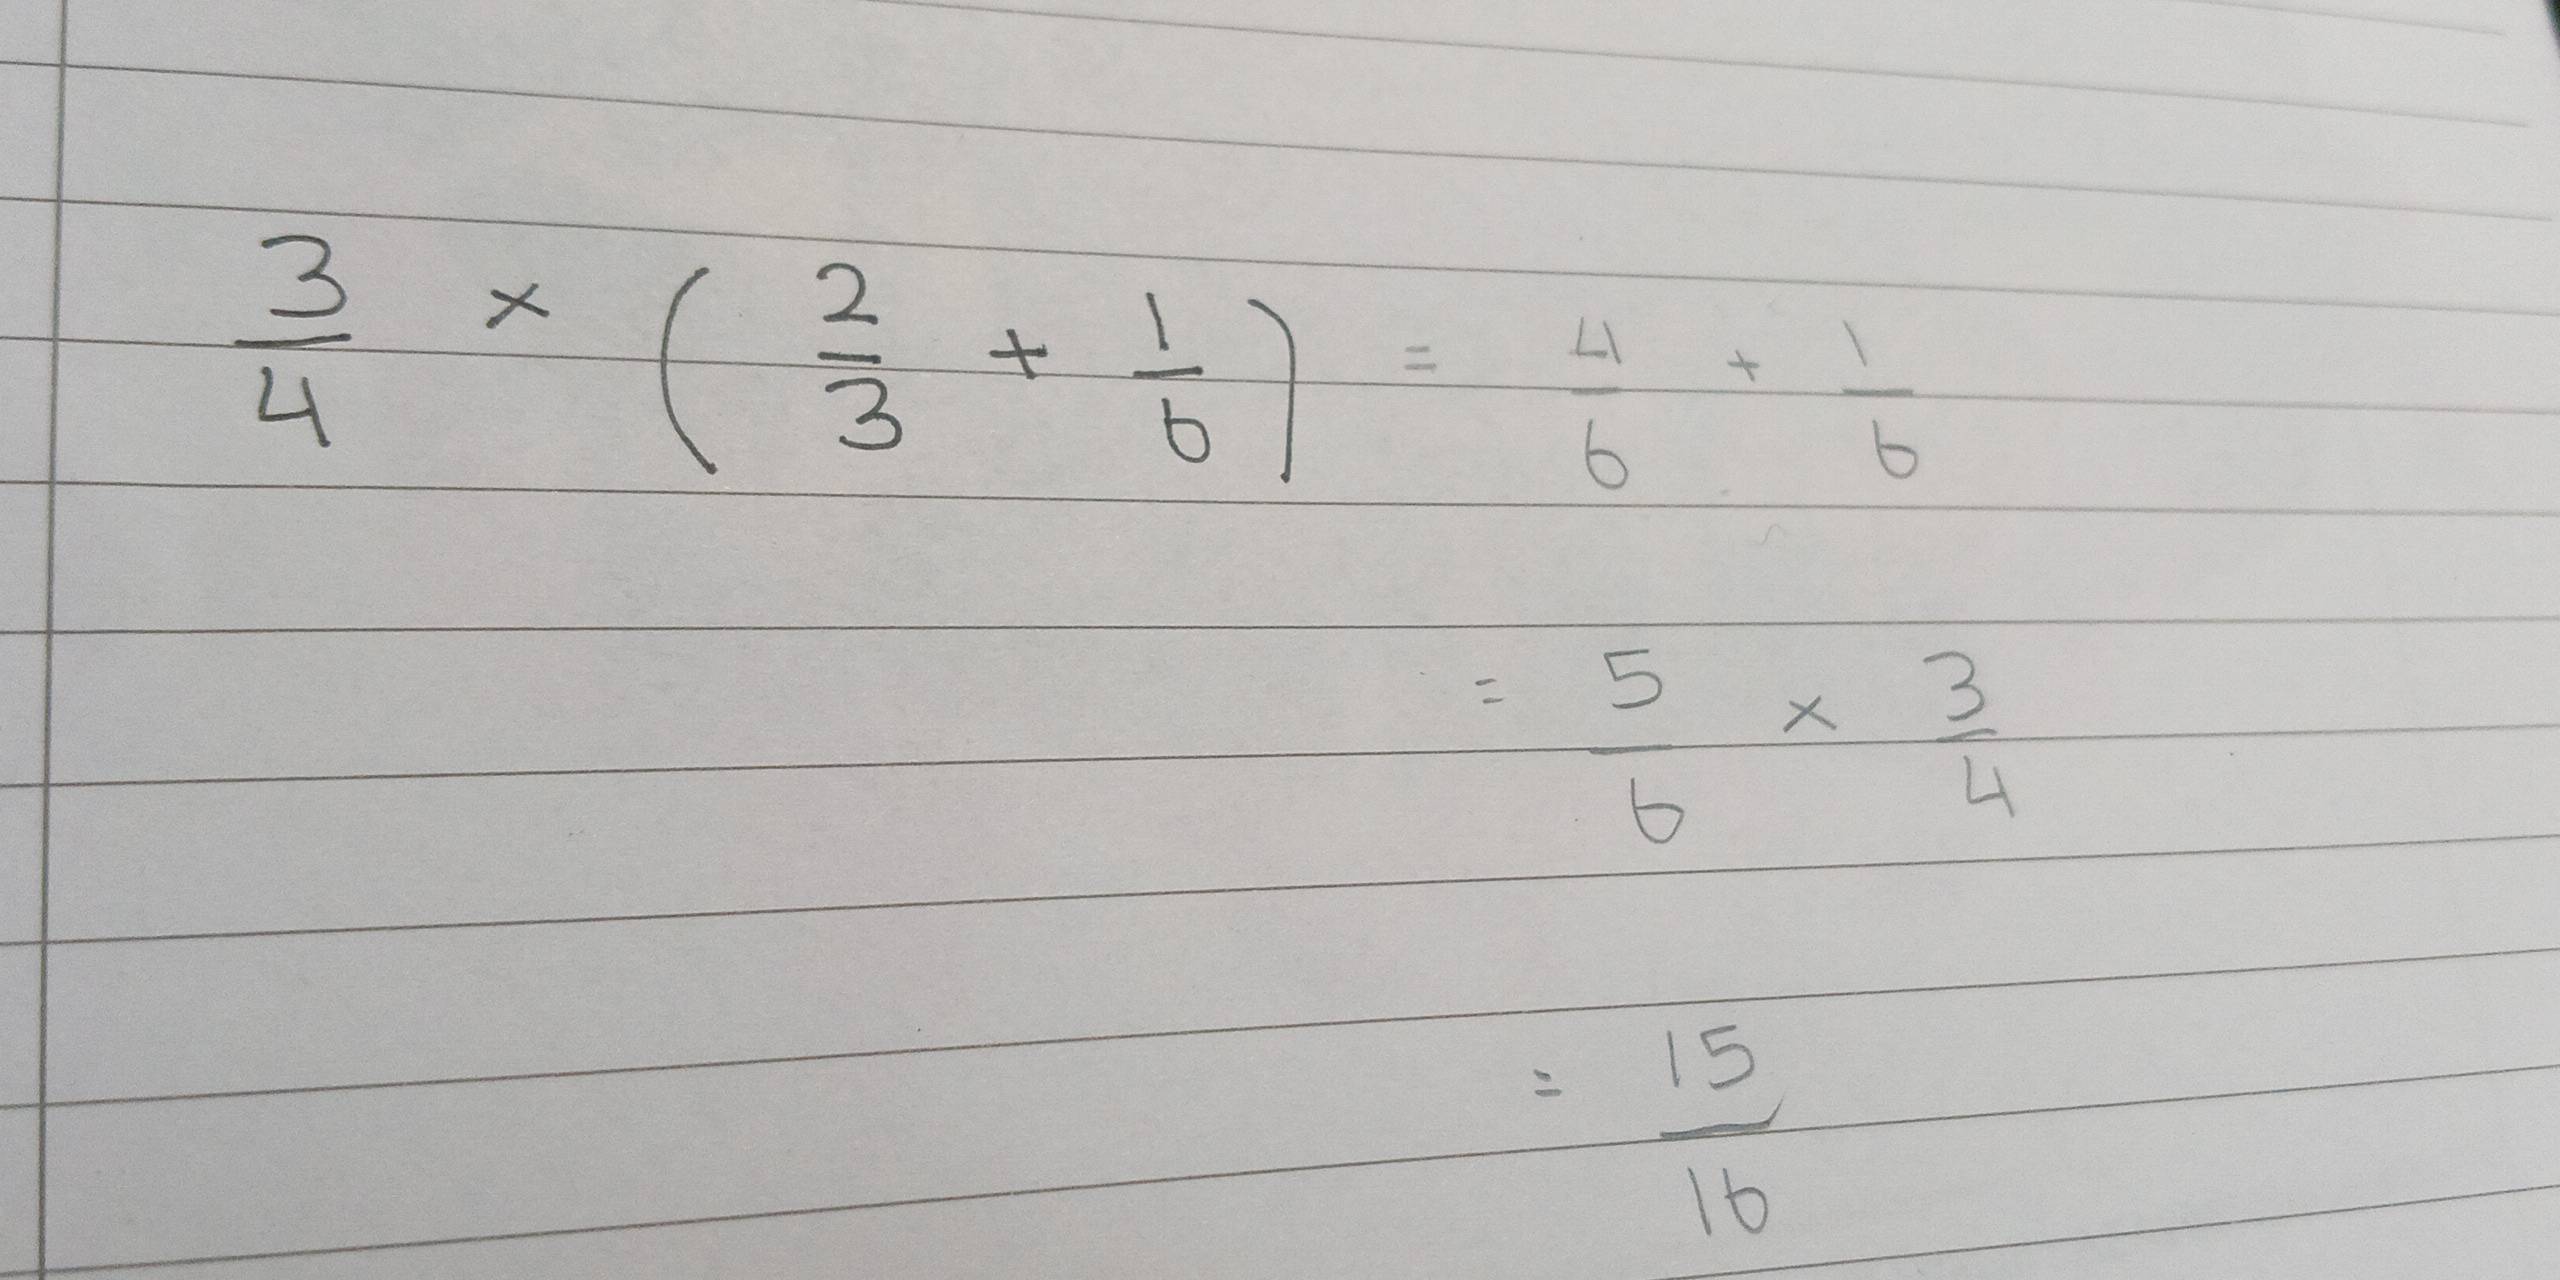 3/4 × (2/3 + 1/6) = 4/6 + 1/6
= 5/6 × 3/4
= 15/16